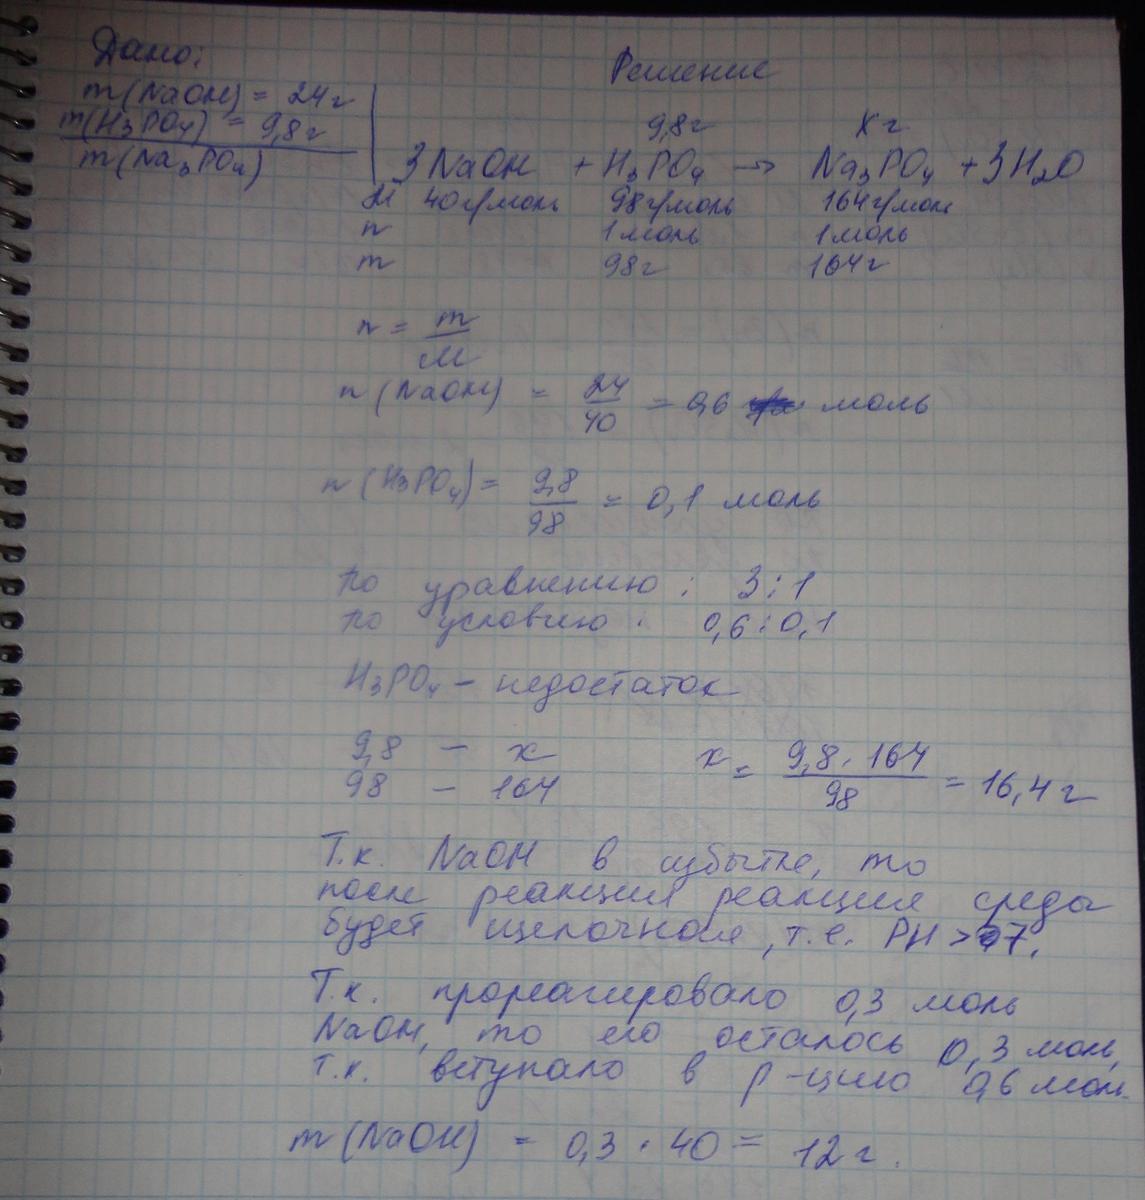 Дано:
Решение
m(NaOH) = 24г
m(H₃PO₄) = 9,8г
9,8г xг
m(Na₃PO₄)
3NaOH + H₃PO₄ → Na₃PO₄ + 3H₂O
M 40г/моль 98г/моль 164г/моль
n 1моль 1моль
m 98г 164г
n = m/M
n(NaOH) = 24/40 = 0,6 моль
n(H₃PO₄) = 9,8/98 = 0,1 моль
по уравнению: 3:1
по условию: 0,6:0,1
H₃PO₄ – недостаток
9,8 – x x = 9,8·164/98 = 16,4г
98 – 164
Т.к. NaOH в избытке, то
после реакции реакция среды
будет щелочная, т.е. PH >7.
Т.к. прореагировало 0,3 моль
NaOH, то его осталось 0,3 моль,
т.к. вступало в р-цию 0,6 моль.
m(NaOH) = 0,3·40 = 12г.